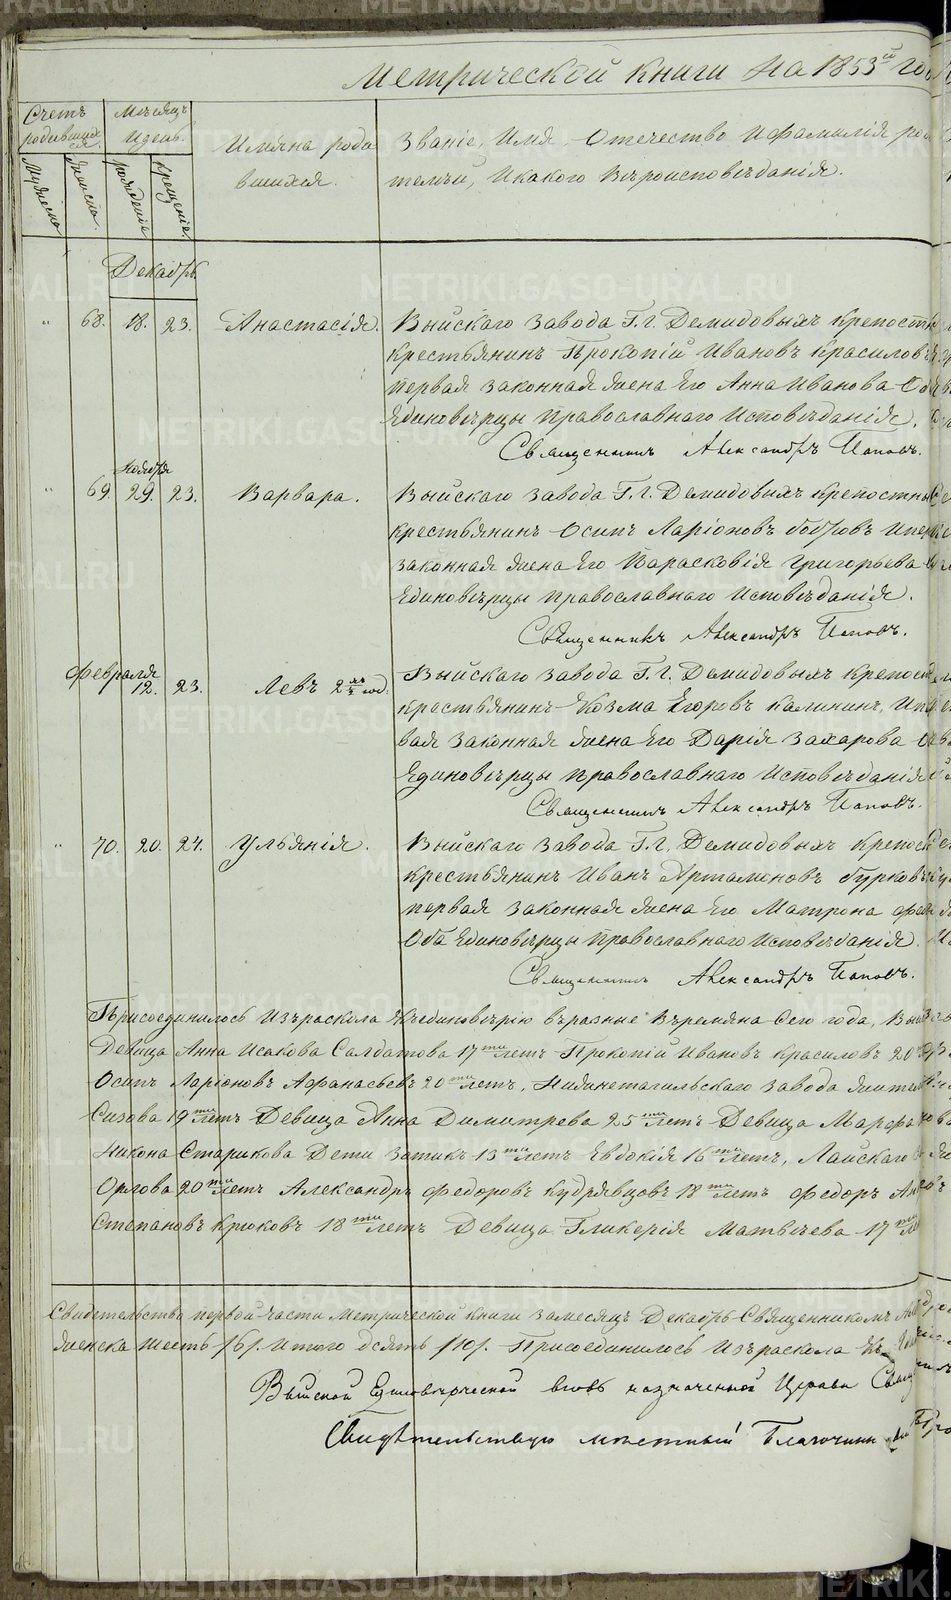 Метрической книги на 1853й го
Счетъ родившихся
Мѣсяцъ и день
Имяна родившихся.
Званіе, Имя, Отечество и фамилія ро
телъй, и какого вѣроисповѣданія.
Мужеска
Женска.
рожденія
крещенія
Декабрь
" 68. 18. 23. Анастасія. Выйскаго завода Г. г. Демидовыхъ крепостн
крестьянинъ Прокопій Ивановъ Красилов
первая законная жена Его Анна Иванова О
Единовѣрцы православнаго исповѣданія.
Священникъ Александръ Поповъ.
Ноября
" 69. 29. 23. Варвара. Выйскаго завода Г. г. Демидовыхъ крепостны
крестьянинъ Осипъ Ларіоновъ Бобровъ и пер
законная жена Его Парасковія Григорьева
Единовѣрцы православнаго исповѣданія.
Священникъ Александръ Поповъ.
Февраля
12. 23. Левъ 2хъ год. Выйскаго завода Г. г. Демидовыхъ крепост
крестьянинъ Козма Егоровъ Калининъ, и п
вая законная жена Его Дарія Захарова О
Единовѣрцы православнаго исповѣданія
Священникъ Александръ Поповъ.
" 70. 20. 24. Ульянія. Выйскаго завода Г. г. Демидовыхъ крепост
крестьянинъ Иванъ Арталиновъ Гурковъ
первая законная жена Его Матрона Фе
Оба Единовѣрцы православнаго исповѣданія.
Священникъ Александръ Поповъ.
Присоединилось изъ раскола къ единовѣрію въ разные веремяна сего года, Вы
Девица Анна Исакова Салдатова 17ти летъ Прокопій Ивановъ Красиловъ 20ти
Осипъ Ларіоновъ Афанасьевъ 20ти летъ, Нижнетагильскаго завода жител
Сизова 19ти летъ Девица Анна Димитрева 25ти летъ Девица Марфа
Никона Старикова Дети Зотикъ 13ти летъ Евдокія 16ти летъ, Лайскаго
Орлова 20ти летъ Александръ Федоровъ Кудрявцовъ 18ти летъ Федоръ Ан
Степановъ Крюковъ 18ти летъ Девица Гликерія Матвѣева 17ти ле
Свидетельство первой части Метрической книги за месяцъ Декабрь Священникомъ
женска шесть /6/. Итого десять /10/. Присоединилось изъ раскола къ
Выйской Единоверческой вновь назначенной Церкви Свящ
Свидѣтельствую местный Благочинн
METRIKI.GASO-URAL.RU